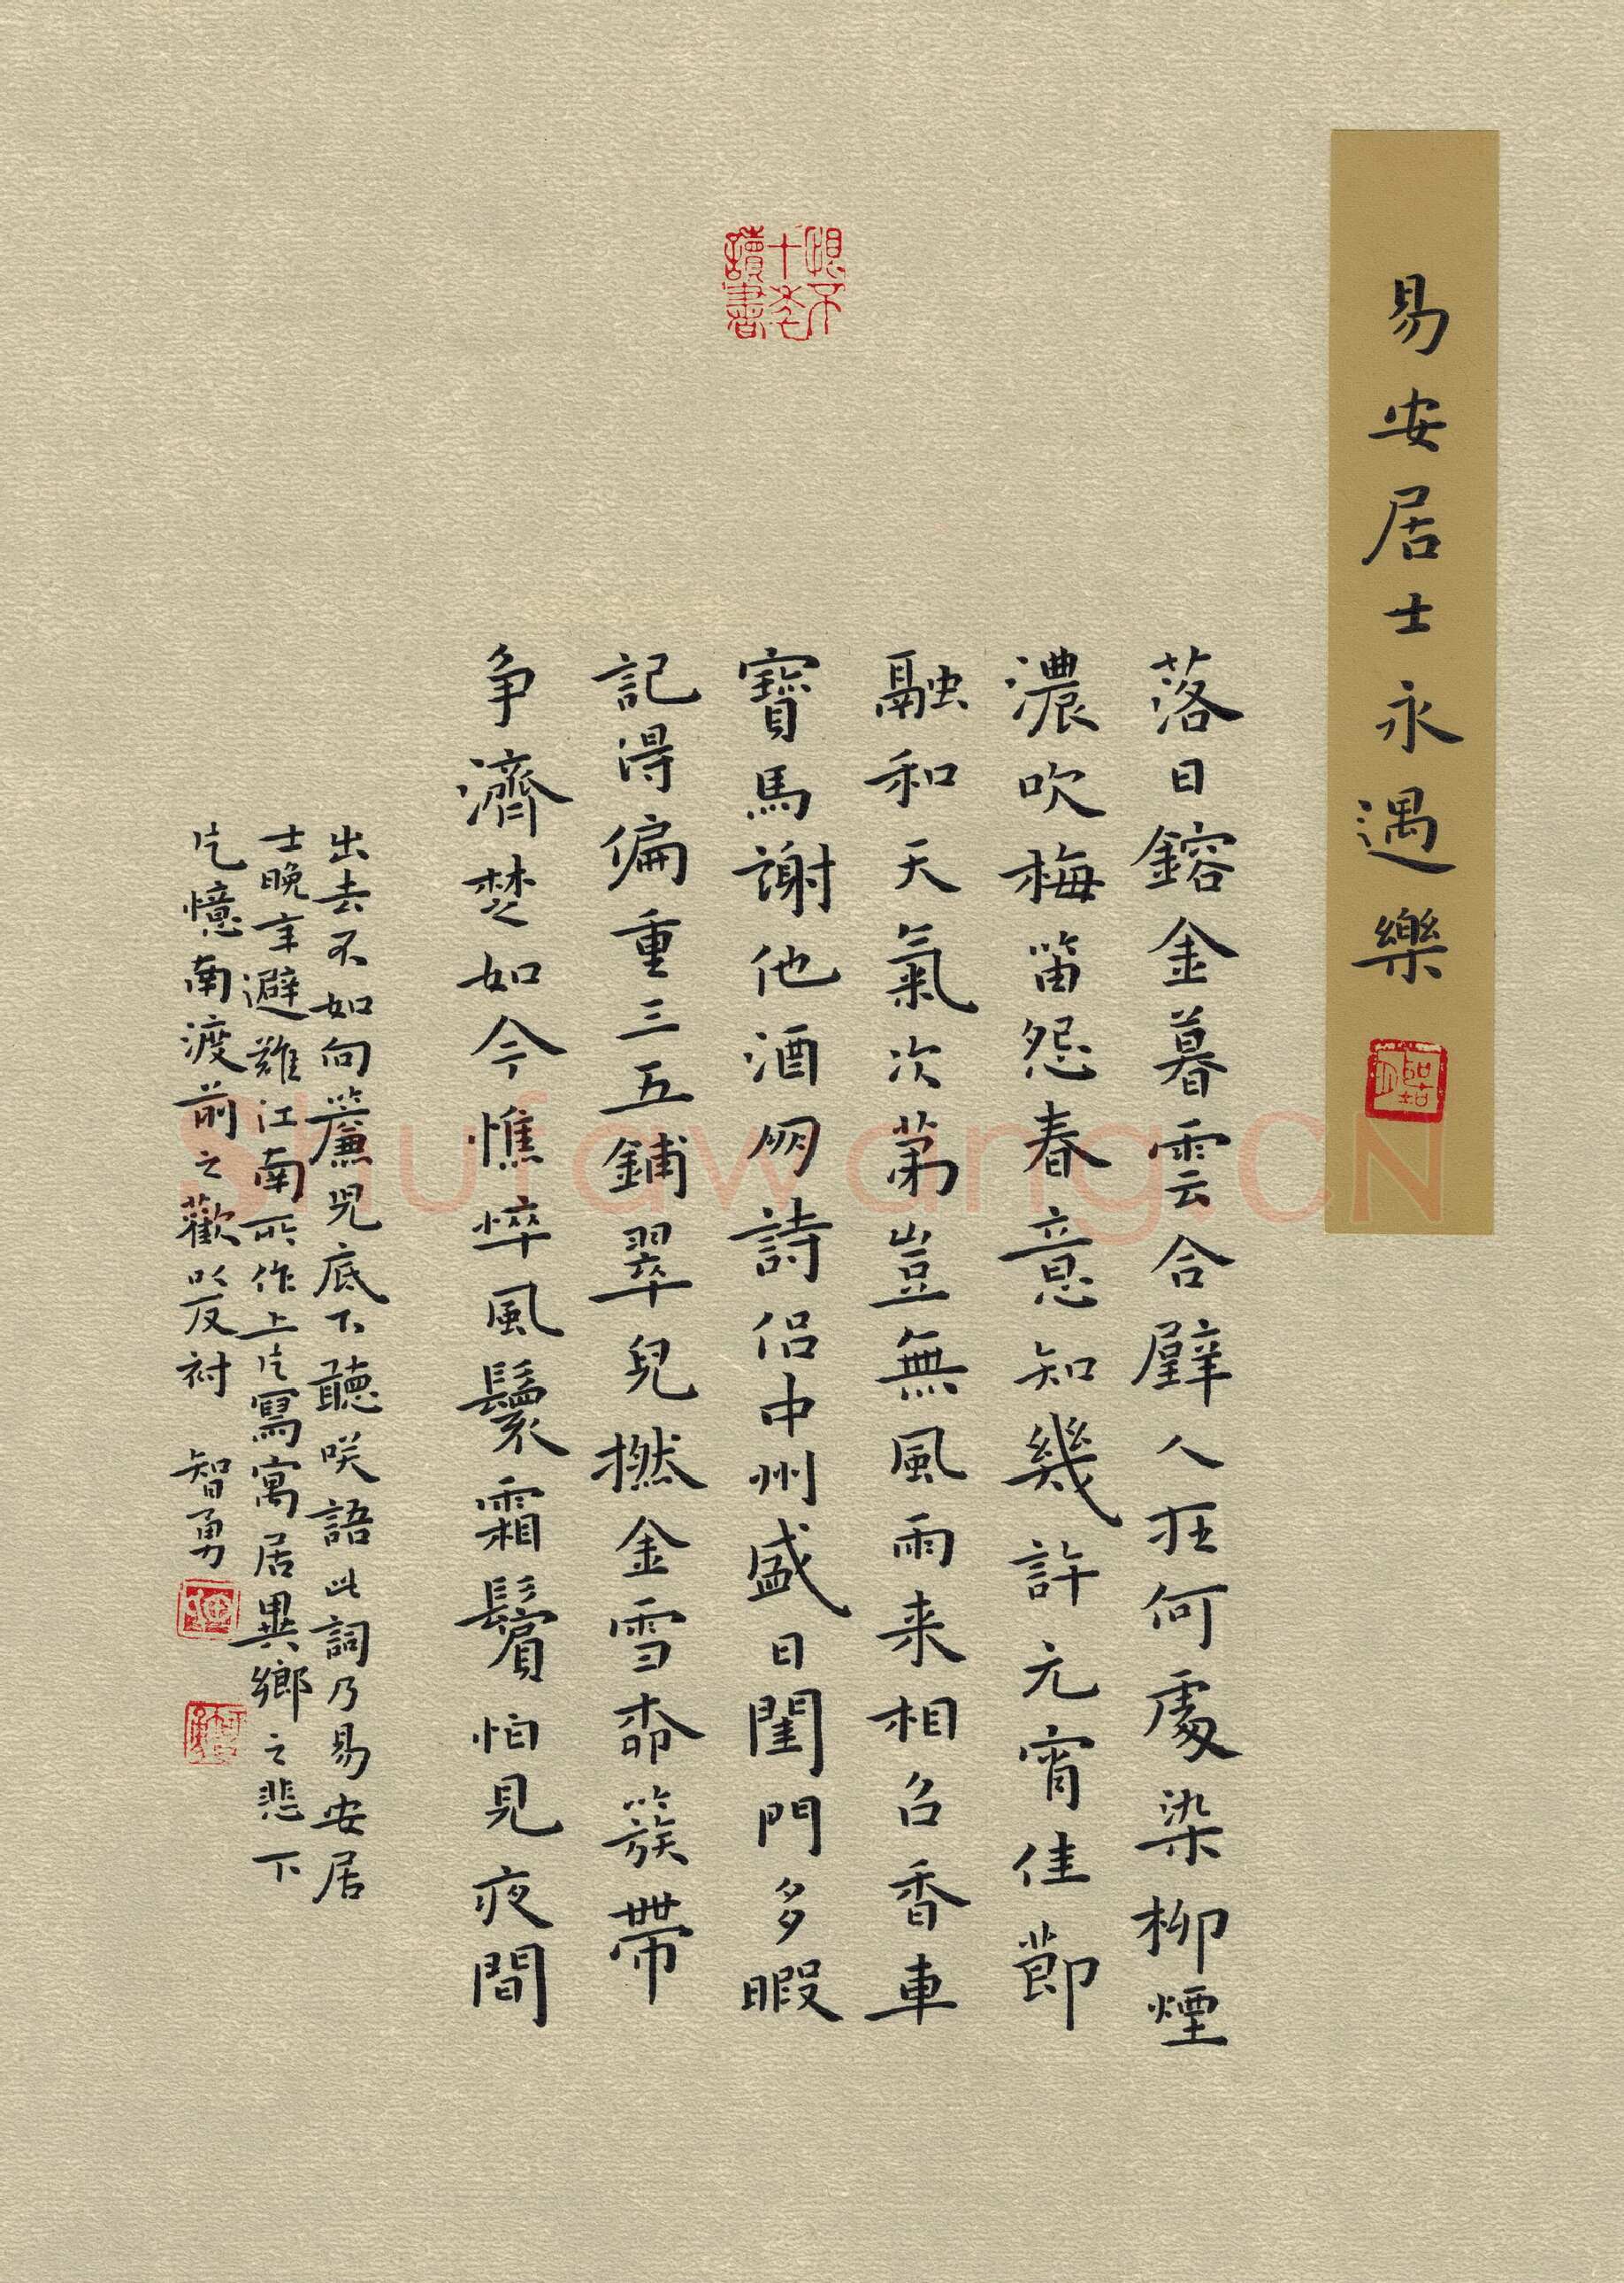 易安居士永遇樂
恨不十年讀書
落日鎔金暮雲合璧人在何處染柳煙
濃吹梅笛怨春意知幾許元宵佳節
融和天氣次第豈無風雨来相召香車
寶馬謝他酒朋詩侶中州盛日閨門多暇
記得偏重三五鋪翠兒撚金雪柳簇帶
争濟楚如今憔悴風鬟霜鬢怕見夜間
出去不如向簾兒底下聽咲語此詞乃易安居
士晚年避難江南所作上片寫寓居異鄉之悲下
片憶南渡前之歡以反衬 智勇
Shufawang.CN